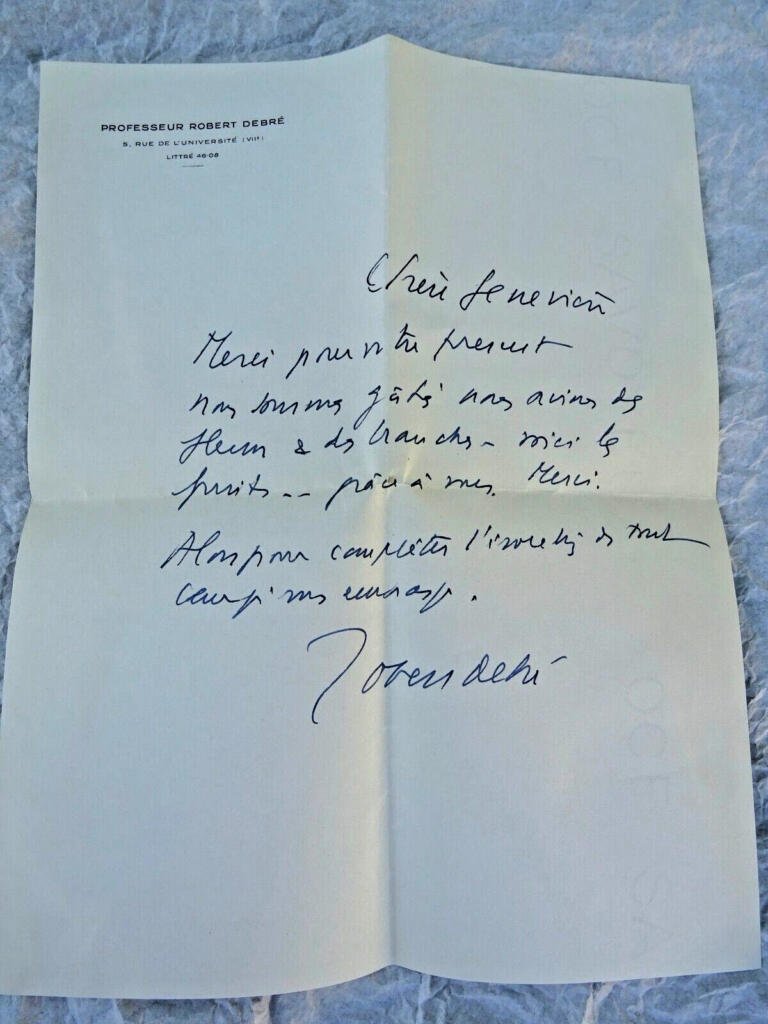 PROFESSEUR ROBERT DEBRÉ
5, RUE DE L'UNIVERSITÉ (VIIe)
LITTRÉ 46-08
Chère Geneviève
Merci pour votre present
nous sommes gâtés nous avions des
fleurs & des branches - voici les
fruits -- grâce à vous. Merci.
Alors pour compléter de tout
coeur je vous embrasse.
Robert Debré